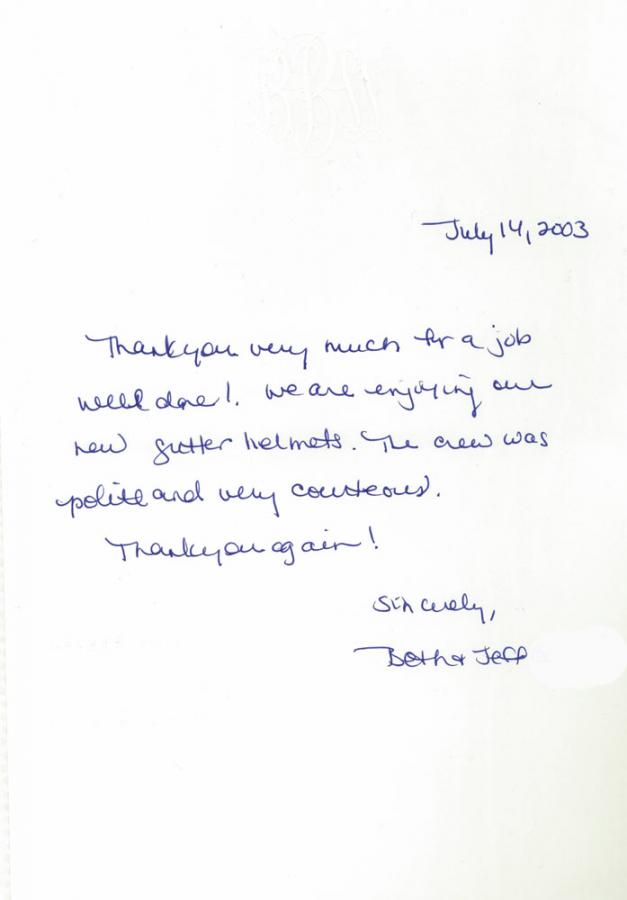 July 14, 2003
Thankyou very much for a job
well done! We are enjoying our
new gutter helmets. The crew was
polite and very courteous.
Thankyou again!
Sincerely,
Beth & Jeff